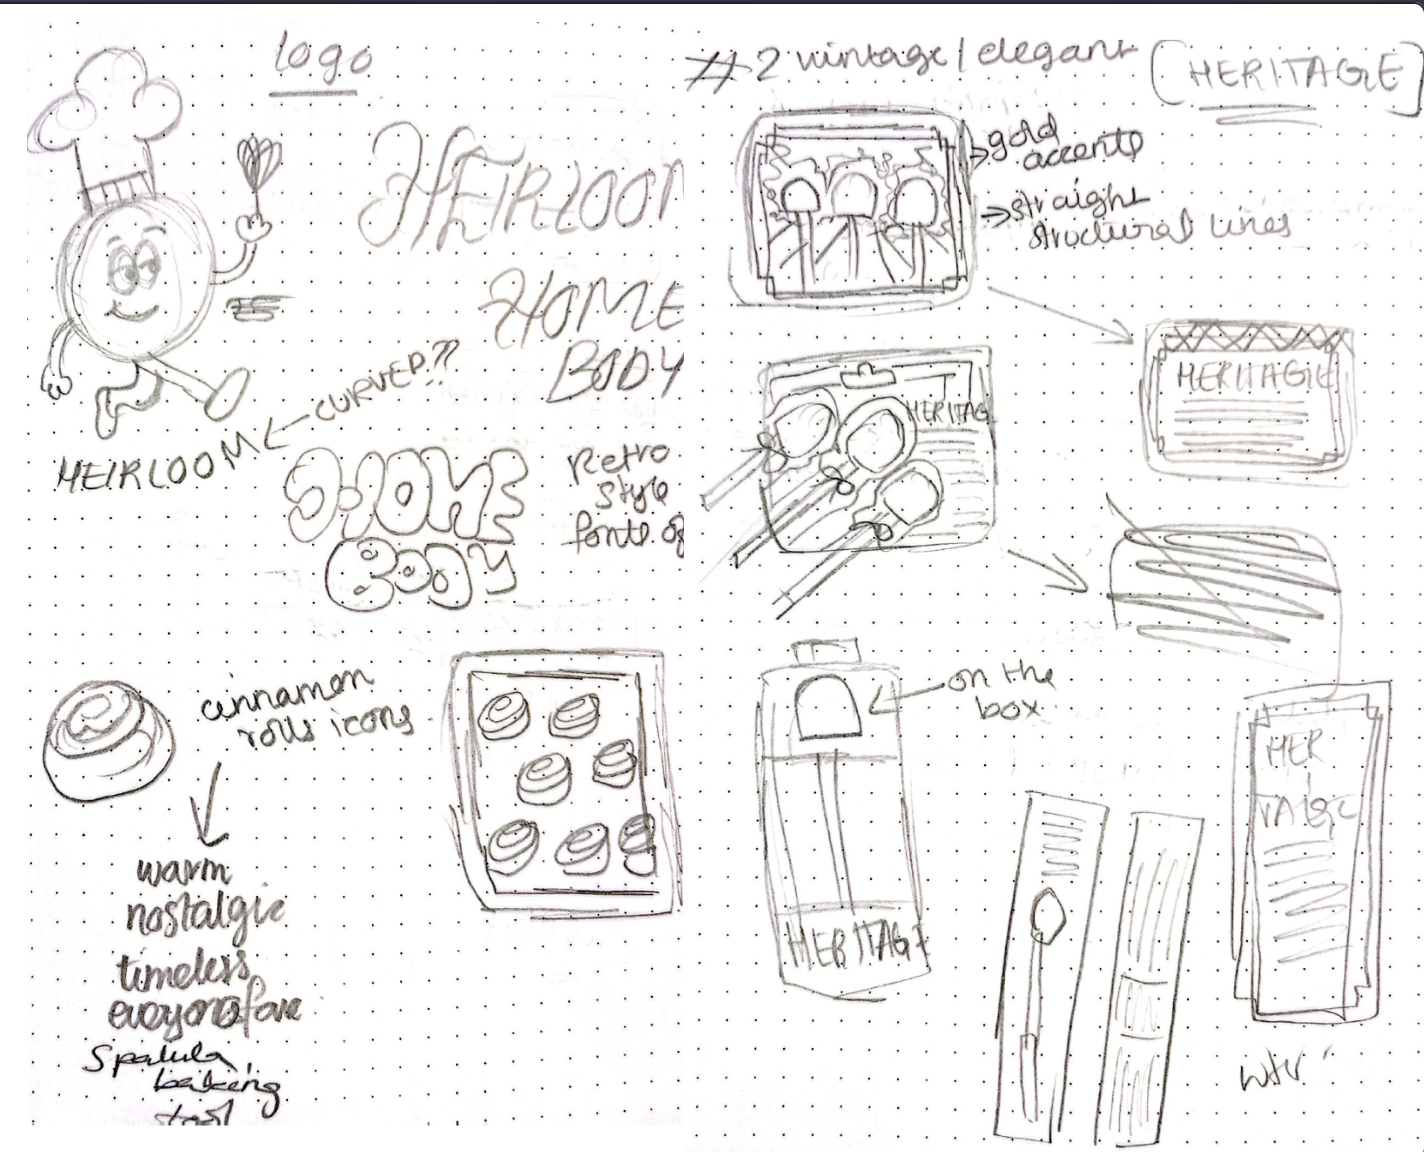 logo
HEIRLOOM
HOME
BODY
CURVED??
HEIRLOOM
HOME
BODY
Retro
style
fonts of
cinnamon
rolls icons
warm
nostalgic
timeless
everyone's fave
Spatula
baking
tool
#2 vintage/elegant [HERITAGE]
gold
accents
straight
structural lines
HERITAGE
HERITAG
on the
box
HERITAGE
HER
I
TAGE